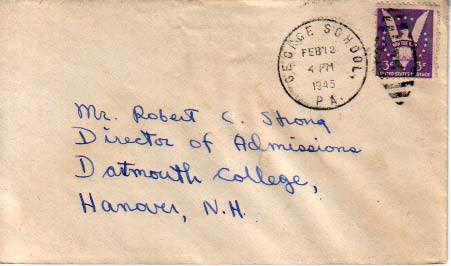 GEORGE SCHOOL,
FEB 12
4 PM
1945
PA.
WIN THE WAR
3¢ 3¢
UNITED STATES POSTAGE
Mr. Robert C. Strong
Director of Admissions
Datmouth College,
Hanover, N.H.